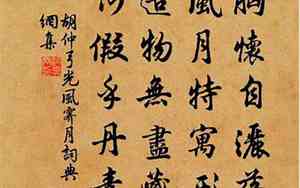 胸懷自灑落
風月特寓形
造物無盡藏
何假手丹青
胡仲弓光風霽月詞典
網集